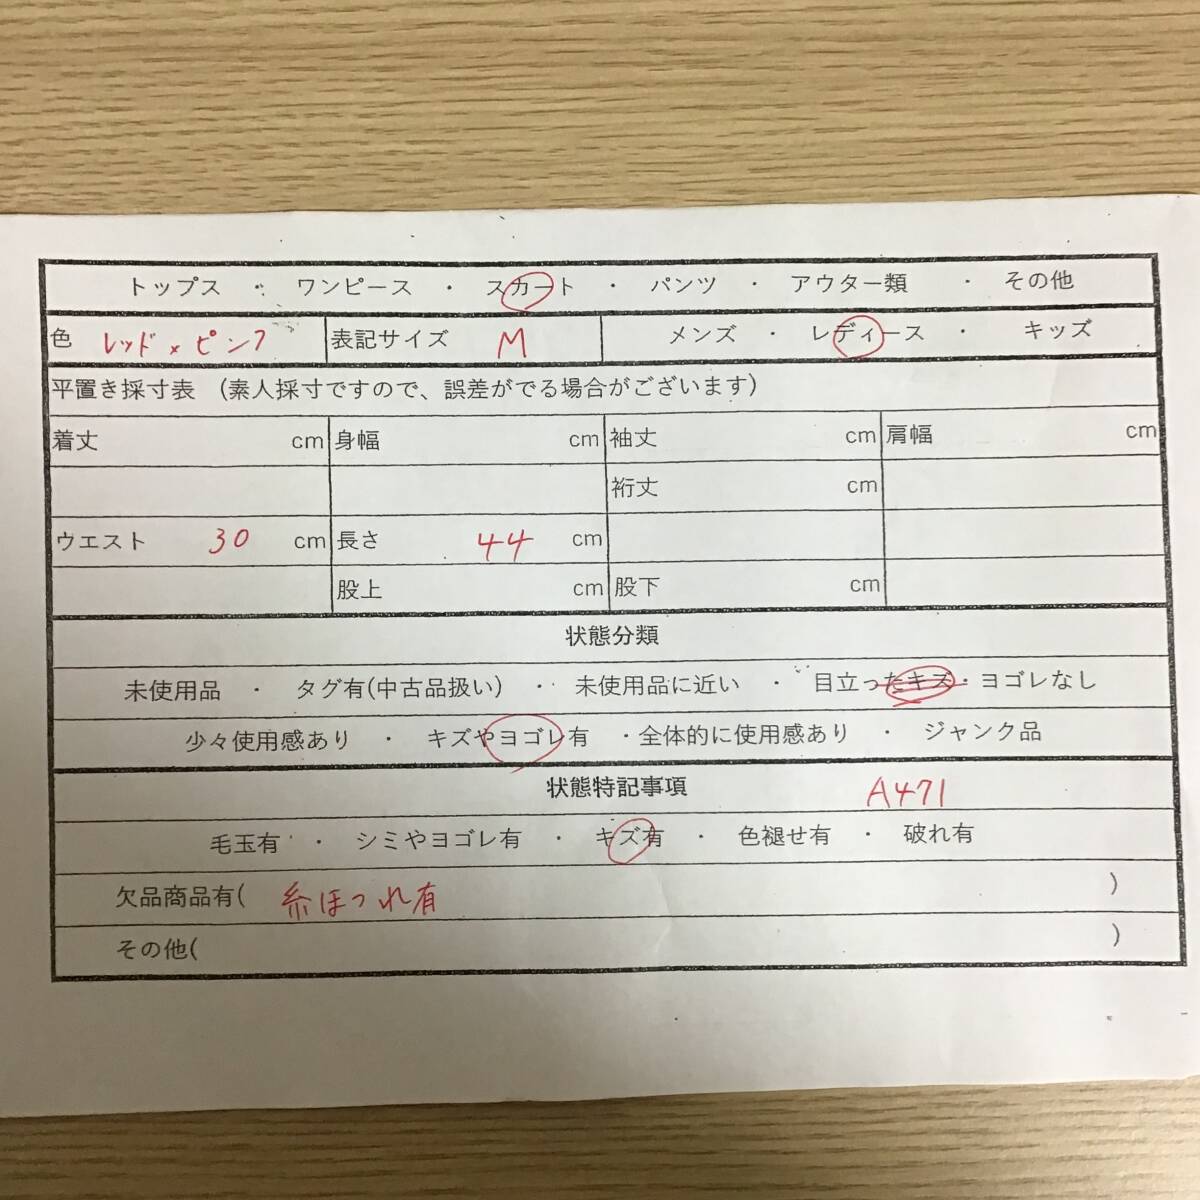 トップス ・ ワンピース ・ スカート ・ パンツ ・ アウター類 ・ その他
色 レッド×ピンク 表記サイズ M メンズ ・ レディース ・ キッズ
平置き採寸表 (素人採寸ですので、誤差がでる場合がございます)
着丈 cm 身幅 cm 袖丈 cm 肩幅 cm
裄丈 cm
ウエスト 30 cm 長さ 44 cm
股上 cm 股下 cm
状態分類
未使用品 ・ タグ有(中古品扱い) ・ 未使用品に近い ・ 目立ったキズ・ヨゴレなし
少々使用感あり ・ キズやヨゴレ有 ・全体的に使用感あり ・ ジャンク品
状態特記事項 A471
毛玉有 ・ シミやヨゴレ有 ・ キズ有 ・ 色褪せ有 ・ 破れ有
欠品商品有( 糸ほつれ有 )
その他( )